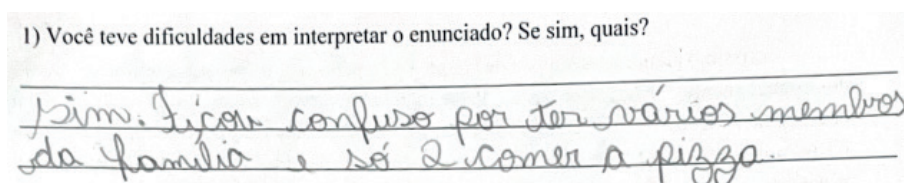 1) Você teve dificuldades em interpretar o enunciado? Se sim, quais?
Sim. Ficou confuso por ter vários membros
da família e só 2 comer a pizza.